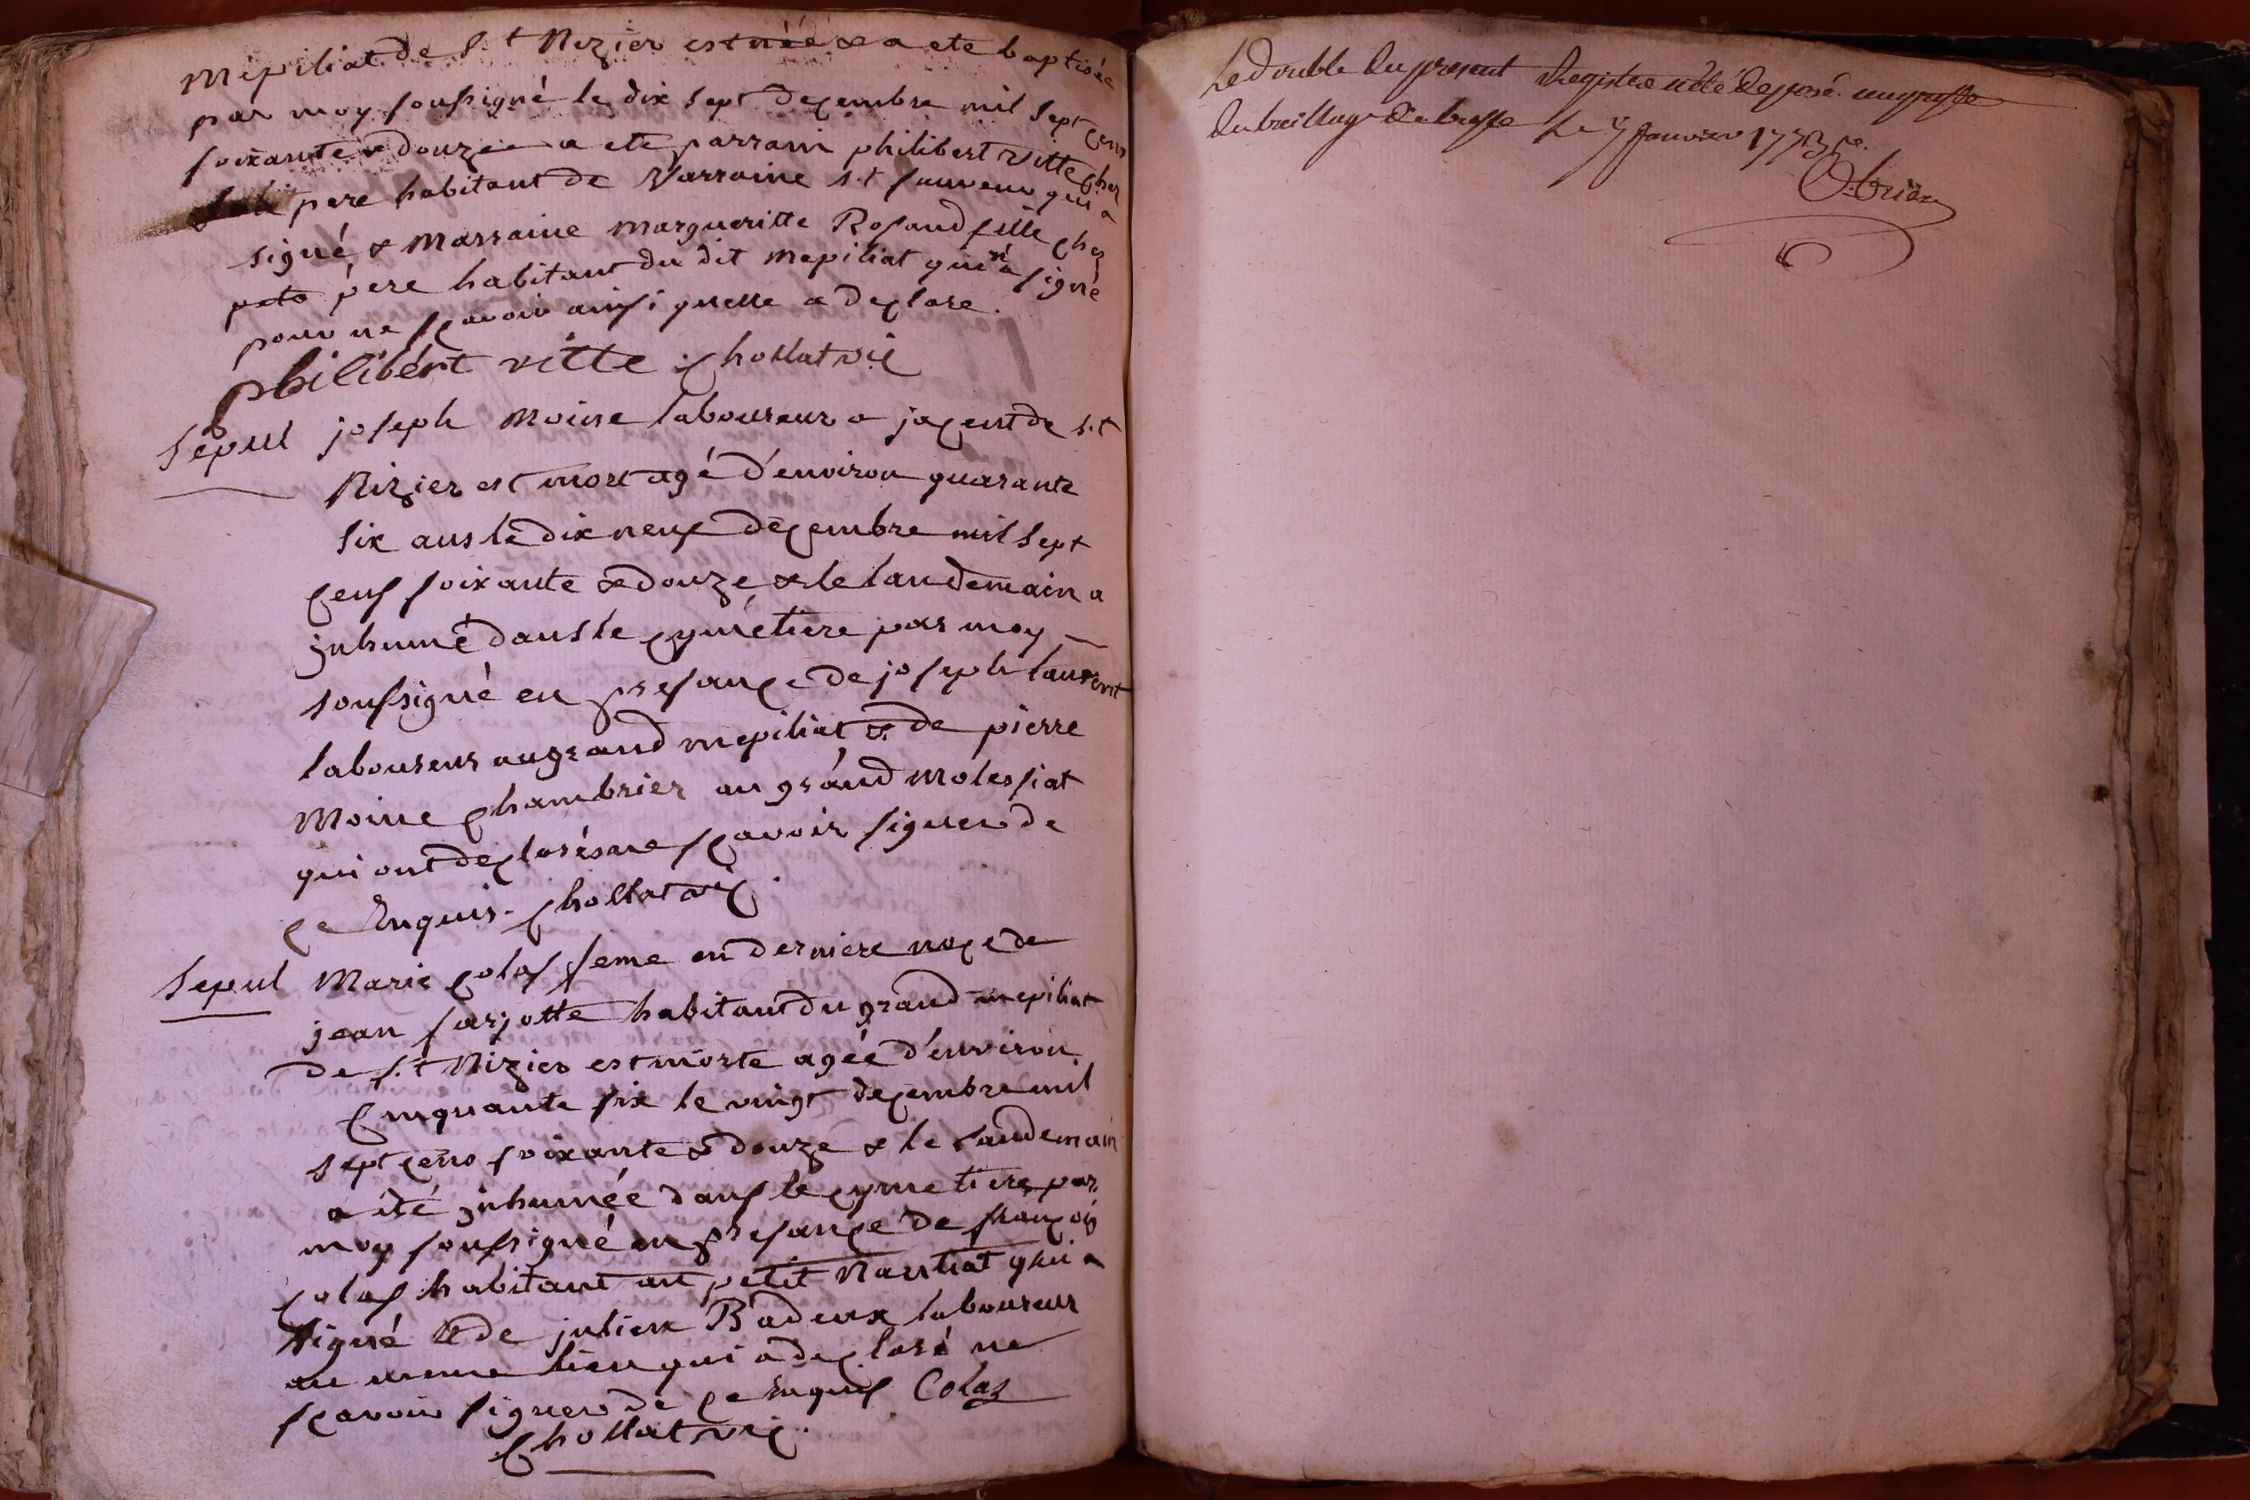 Mépiliat de S.t Nizier est née & a ete baptisée
par moy soussigné le dix sept decembre mil sept cens
soixante & douze a ete parrain philibert vitte chez
pere habitant de Varraine s.t sauveur qui a
signé & Marraine Margueritte Rosand fille chez
pere habitant du dit mepiliat qui n'a signé
pour ne scavoir ainsi quelle a declare.
philibért vitte chollat vic
Sepul joseph Moine laboureur a jacent de s.t
Nizier est mort agé d'environ quarante
six ans le dix neuf decembre mil sept
cens soixante & douze & le landemain a
inhumé dans le cymétiere par moy
soussigné en presance de joseph laurent
laboureur au grand mepiliat & de pierre
Moine chambrier au grand Molessiat
qui ont declarés ne scavoir signer de
ce Enquis. chollat vic.
Sepul Marie Colas feme en derniere noce de
jean farjotte habitant du grand mepiliat
de s.t Nizier est morte agée d'environ
Cinquante six le vingt decembre mil
sept cens soixante & douze & le landemain
a été inhumée dans le cymetiere par
moy soussigné en presance de françois
Colas habitant au petit Narntiat qui a
signé & de julien Badoux laboureur
au meme lieu qui a declaré ne
scavoir signer de ce Enquis Colas
Chollat vic.
Le double du present Registre a été deposé au greffe
du bailliage de bresse le 7 janvier 1773
Obrien